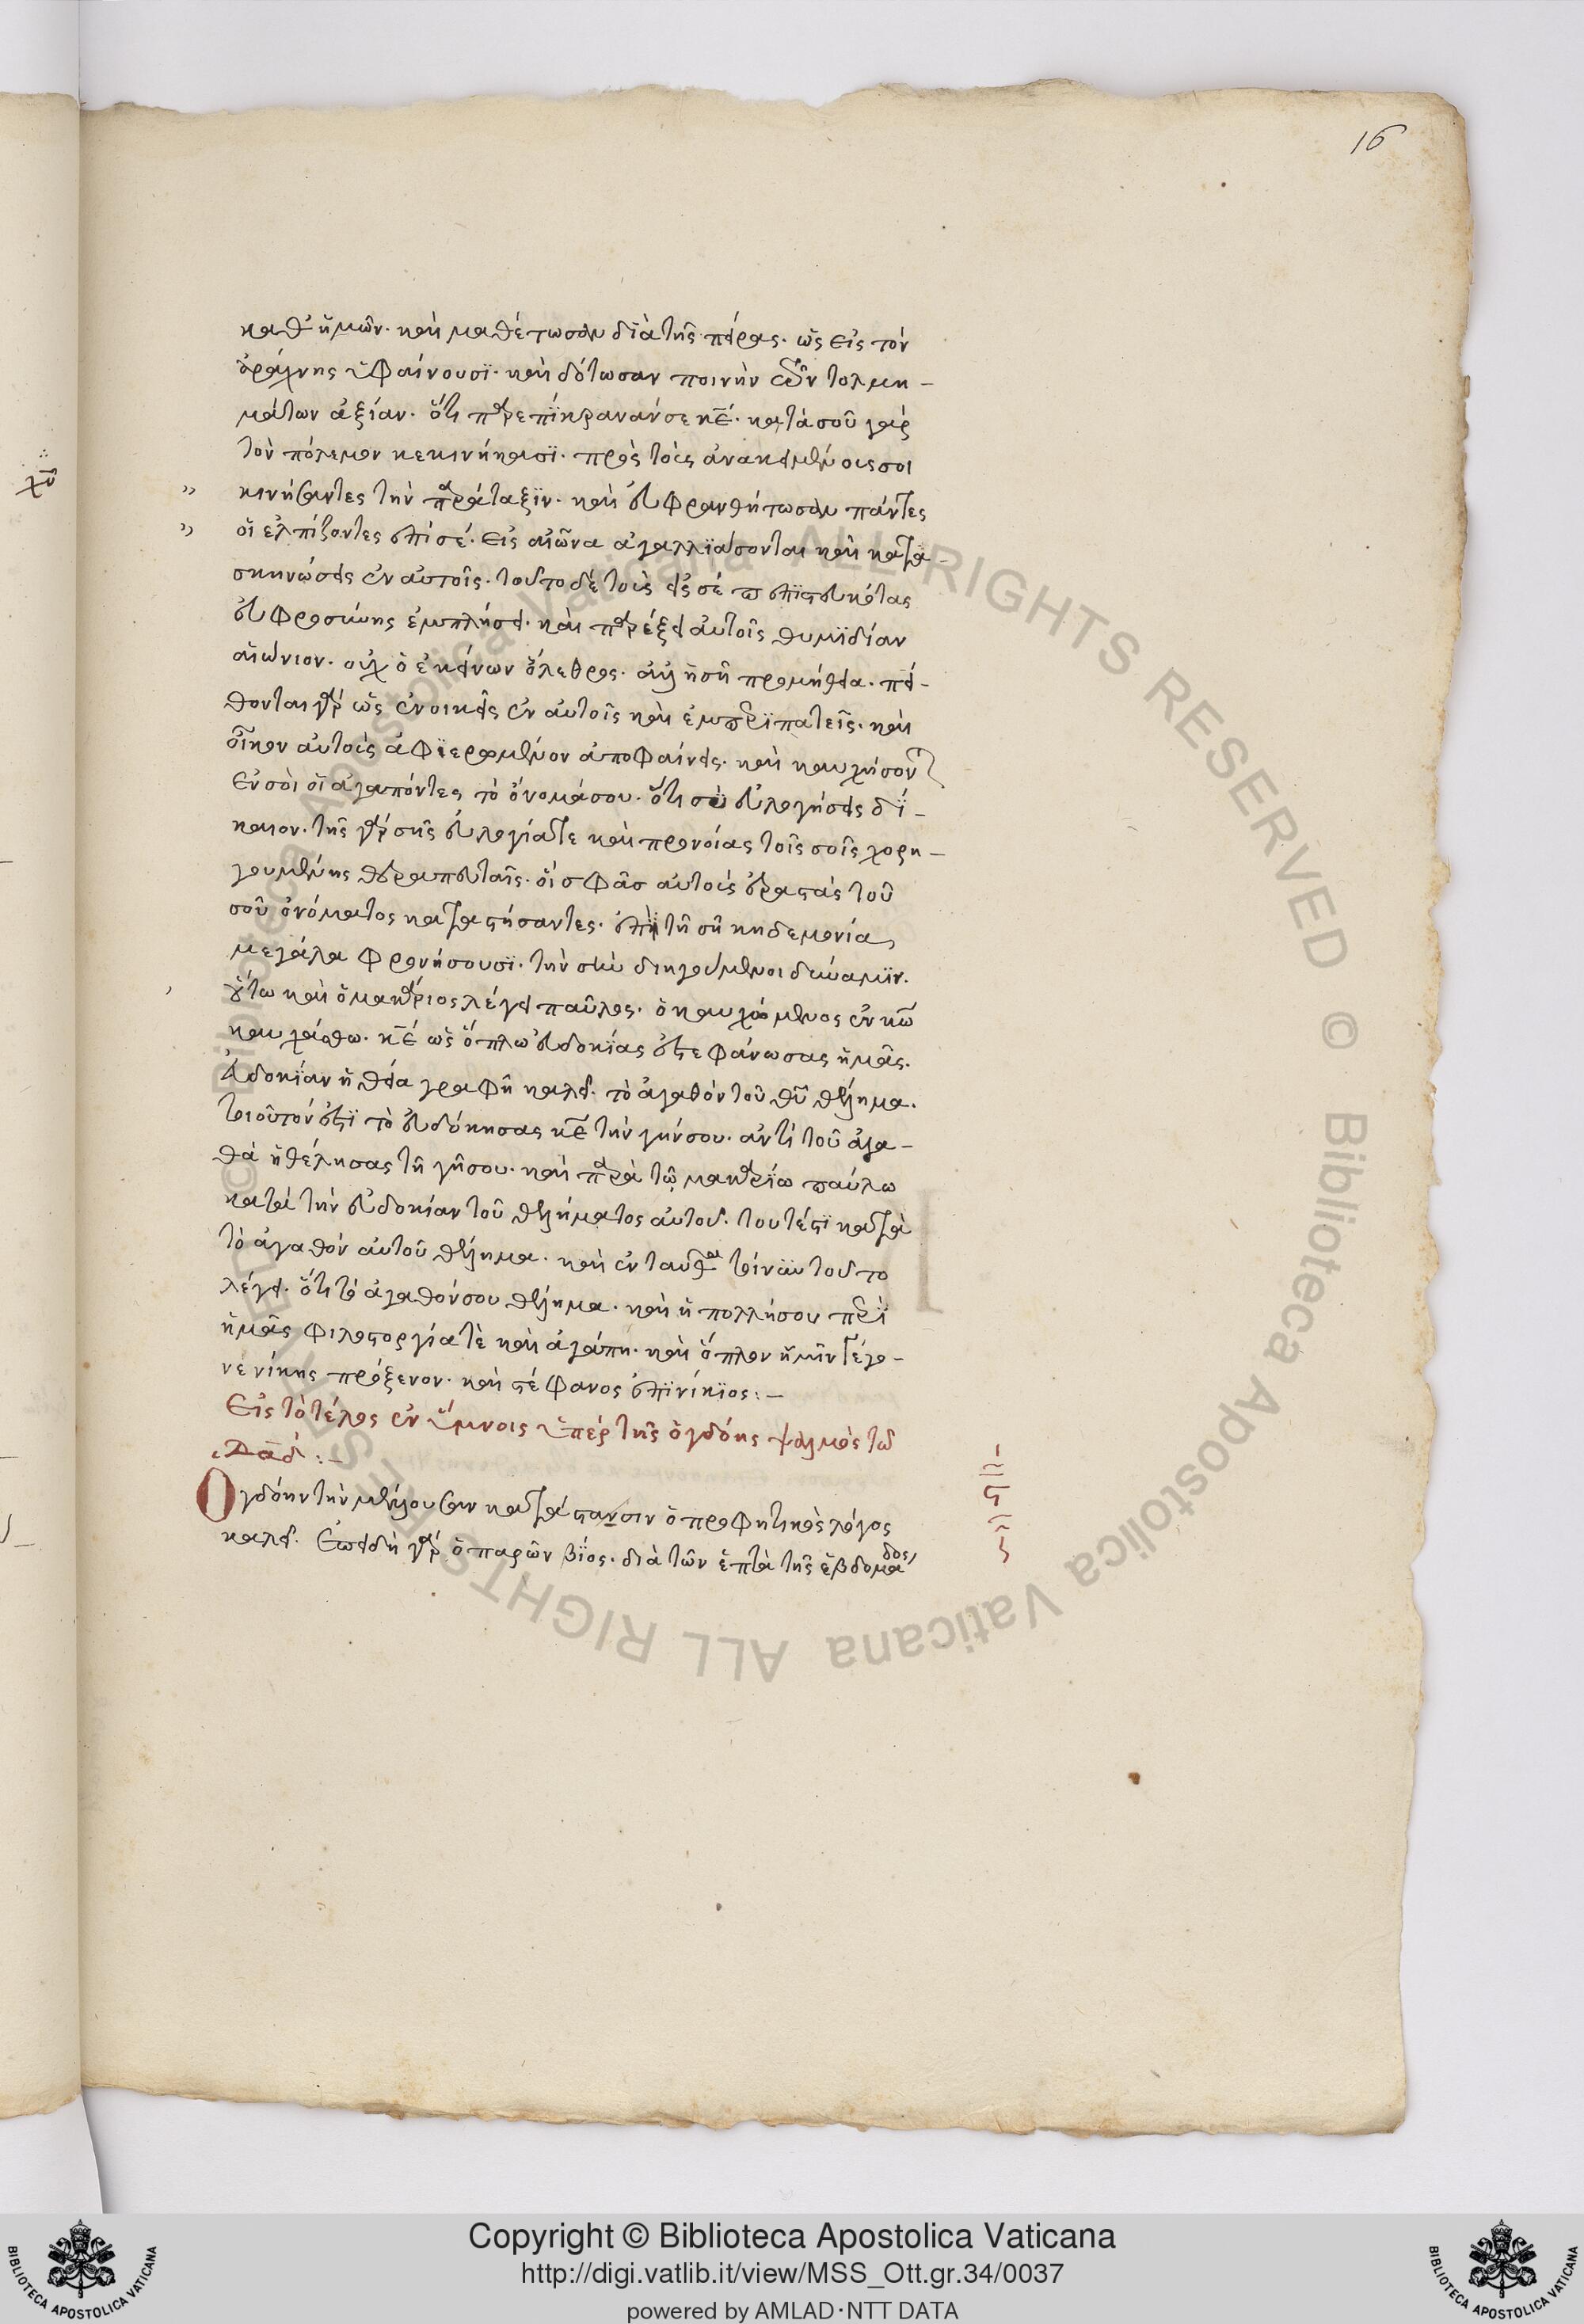 16
καθ' ἡμῶν· καὶ μαθέτωσαν διὰ τῆς πείρας· ὡς εἰς τὸν
ἀράχνης ὑφαίνουσϊ· καὶ δότωσαν ποινὴν τῶν τολμη-
μάτων ἀξίαν· ὅτι παρεπΐκρανάν σε κ̅ε̅· κατὰ σοῦ γὰρ
τὸν πόλεμον κεκινήκασϊ· πρὸς τοὺς ἀνακειμένους σοι
κινήσαντες τὴν παράταξϊν· καὶ εὐφρανθήτωσαν πάντες
οἱ ἐλπίζοντες ἐπὶ σέ· εἰς αἰῶνα ἀγαλλϊάσονται καὶ κατα-
σκηνώσεις ἐν αὐτοῖς· τοῦτο δὲ τοὺς εἰς σέ πεπϊστευκότας
εὐφροσύνης ἐμπλήσει· καὶ παρέξει αὐτοῖς θυμϊδίαν
αἰώνιον· οὐχ ὁ ἐκείνων ὄλεθρος· ἀλλ' ἡ σὴ προμήθεια· πεί-
θονται γὰρ ὡς ἐνοικεῖς ἐν αὐτοῖς καὶ ἐμπερϊπατεῖς· καὶ
οἶκον αὐτοὺς ἀφϊερομένον ἀποφαίνεις· καὶ καυχήσονται
ἐν σοὶ οἱ ἀγαπόντες τὸ ὄνομά σου· ὅτι σὺ εὐλογήσεις δί-
καιον· τῆς γὰρ σῆς εὐλογίας τε καὶ προνοίας τοῖς σοῖς χορη-
γουμένης θεραπευταῖς· οἱ σφᾶσ αὐτοὺς ἐραστὰς τοῦ
σοῦ ὀνόματος καταστήσαντες· ἐπὶ τῇ σῇ κηδεμονία
μεγάλα φρονήσουσϊ· τὴν σὴν διηγούμενοι δύναμϊν·
οὕτω καὶ ὁ μακάριος λέγει παῦλος· ὁ καυχόμενος ἐν κ̅ω̅
καυχάσθω· κ̅ε̅ ὡς ὅπλω εὐδοκίας ἐστεφάνωσας ἡμᾶς·
εὐδοκίαν ἡ θεία γραφὴ καλεῖ· τὸ ἀγαθὸν τοῦ θ̅υ̅ θέλημα·
τοιοῦτόν ἐστϊ τὸ εὐδόκησας κ̅ε̅ τὴν γήν σου· ἀντὶ τοῦ ἀγα-
θὰ ἠθέλησας τῇ γῇ σου· καὶ παρὰ τῷ μακαρϊω παύλω
κατὰ τὴν εὐδοκίαν τοῦ θελήματος αὐτοῦ· τουτέστϊ κατὰ
τὸ ἀγαθὸν αὐτοῦ θέλημα· καὶ ἐνταῦθα τοίνυν τοῦτο
λέγει· ὅτι τὸ ἀγαθόν σου θέλημα· καὶ ἡ πολλή σου περὶ
ἡμᾶς φιλοστοργία τὲ καὶ ἀγάπη· καὶ ὅπλον ἡμῖν γέγο-
νε νίκης πρόξενον· καὶ στέφανος ἐπϊνίκϊος:-
Εἰς τὸ τέλος ἐν ὕμνοις ὑπὲρ τῆς ὀγδόης ψαλμὸς τῶ
Δᾱδ:-
Ογδόην τὴν μέλλουσαν κατάστασιν ὁ προφητικὸς λόγος
καλεῖ. Ἐπειδὴ γὰρ ὁ παρῶν βϊος· διὰ τῶν ἑπτὰ τῆς ἑβδομάδος
Copyright © Biblioteca Apostolica Vaticana
http://digi.vatlib.it/view/MSS_Ott.gr.34/0037
powered by AMLAD·NTT DATA
© Biblioteca Apostolica Vaticana ALL RIGHTS RESERVED © Biblioteca Apostolica Vaticana ALL RIGHTS RESERVED
BIBLIOTECA APOSTOLICA VATICANA
BIBLIOTECA APOSTOLICA VATICANA